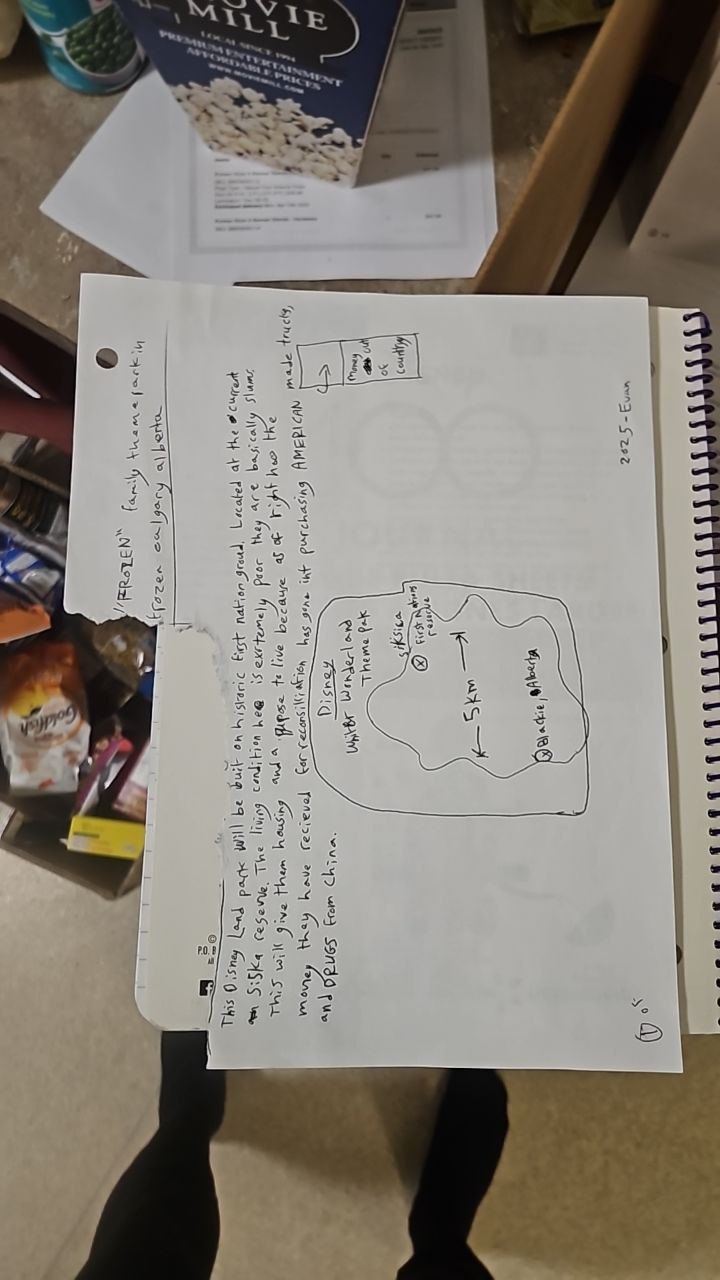 MOVIE
MILL
LOCAL SINCE 1994
PREMIUM ENTERTAINMENT
AFFORDABLE PRICES
WWW.MOVIEMILL.COM
Goldfish
"FROZEN" family theme park in
frozen calgary alberta
This Disney Land park will be buit on historic first nation groud. Located at the current
Siska reserve. The living condition here is exrtemely poor they are basically slums.
This will give them housing and a pupose to live because as of right hoo the
money they have recieved for reconsilliation has gone int purchasing AMERICAN made trucks,
and DRUGS from China.
money out
of
country
Disney
Winter Wonderland
Theme Pak
siksika
First Nations
reserve
5km
Blackie, Alberta
2025-Evan